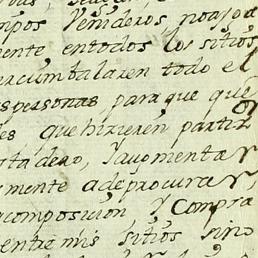 mpos Venideros no aya
mente, entodos los sitios
ercumbalaren todo el
spersonas para que que
es que hizieren partir
rtadero, Yaugmentar
mente adeprocurar,
composicion, y Compra
entre mis sitios sino